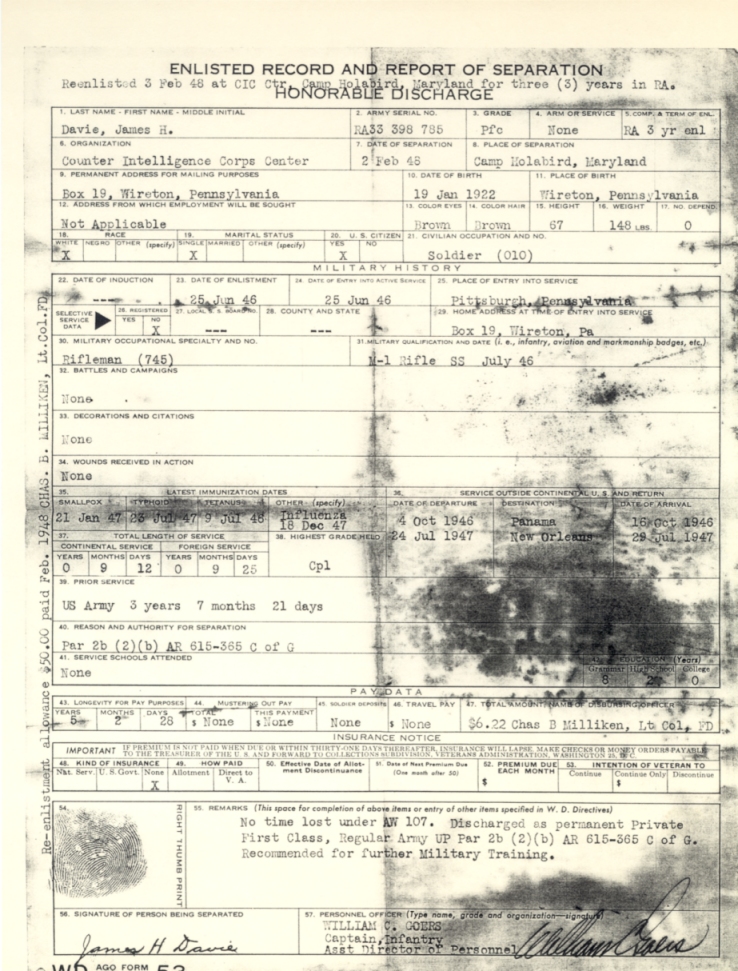 ENLISTED RECORD AND REPORT OF SEPARATION
Reenlisted 3 Feb 48 at CIC Ctr, Camp Holabird, Maryland for three (3) years in RA.
HONORABLE DISCHARGE
1. LAST NAME - FIRST NAME - MIDDLE INITIAL 2. ARMY SERIAL NO. 3. GRADE 4. ARM OR SERVICE 5. COMP. & TERM OF ENL.
Davie, James H. RA33 398 785 Pfc None RA 3 yr enl
6. ORGANIZATION 7. DATE OF SEPARATION 8. PLACE OF SEPARATION
Counter Intelligence Corps Center 2 Feb 48 Camp Holabird, Maryland
9. PERMANENT ADDRESS FOR MAILING PURPOSES 10. DATE OF BIRTH 11. PLACE OF BIRTH
Box 19, Wireton, Pennsylvania 19 Jan 1922 Wireton, Pennsylvania
12. ADDRESS FROM WHICH EMPLOYMENT WILL BE SOUGHT 13. COLOR EYES 14. COLOR HAIR 15. HEIGHT 16. WEIGHT 17. NO. DEPEND.
Not Applicable Brown Brown 67 148 LBS. 0
18. RACE 19. MARITAL STATUS 20. U. S. CITIZEN 21. CIVILIAN OCCUPATION AND NO.
WHITE NEGRO OTHER (specify) SINGLE MARRIED OTHER (specify) YES NO
X X X Soldier (010)
MILITARY HISTORY
22. DATE OF INDUCTION 23. DATE OF ENLISTMENT 24. DATE OF ENTRY INTO ACTIVE SERVICE 25. PLACE OF ENTRY INTO SERVICE
--- 25 Jun 46 25 Jun 46 Pittsburgh, Pennsylvania
SELECTIVE SERVICE DATA 26. REGISTERED 27. LOCAL S. S. BOARD NO. 28. COUNTY AND STATE 29. HOME ADDRESS AT TIME OF ENTRY INTO SERVICE
YES NO
X --- --- Box 19, Wireton, Pa
30. MILITARY OCCUPATIONAL SPECIALTY AND NO. 31. MILITARY QUALIFICATION AND DATE (i. e., infantry, aviation and marksmanship badges, etc.)
Rifleman (745) M-1 Rifle SS July 46
32. BATTLES AND CAMPAIGNS
None
33. DECORATIONS AND CITATIONS
None
34. WOUNDS RECEIVED IN ACTION
None
35. LATEST IMMUNIZATION DATES 36. SERVICE OUTSIDE CONTINENTAL U. S. AND RETURN
SMALLPOX TYPHOID TETANUS OTHER (specify) DATE OF DEPARTURE DESTINATION DATE OF ARRIVAL
21 Jan 47 23 Jul 47 9 Jul 48 Influenza 18 Dec 47 4 Oct 1946 Panama 16 Oct 1946
24 Jul 1947 New Orleans 29 Jul 1947
37. TOTAL LENGTH OF SERVICE 38. HIGHEST GRADE HELD
CONTINENTAL SERVICE FOREIGN SERVICE
YEARS MONTHS DAYS YEARS MONTHS DAYS
0 9 12 0 9 25 Cpl
39. PRIOR SERVICE
US Army 3 years 7 months 21 days
40. REASON AND AUTHORITY FOR SEPARATION
Par 2b (2)(b) AR 615-365 C of G
41. SERVICE SCHOOLS ATTENDED EDUCATION (Years)
None Grammar High School College
8 0
PAY DATA
43. LONGEVITY FOR PAY PURPOSES 44. MUSTERING OUT PAY 45. SOLDIER DEPOSITS 46. TRAVEL PAY 47. TOTAL AMOUNT, NAME OF DISBURSING OFFICER
YEARS MONTHS DAYS TOTAL THIS PAYMENT
5 2 28 $ None $ None None $ None $6.22 Chas B Milliken, Lt Col, FD
INSURANCE NOTICE
IMPORTANT IF PREMIUM IS NOT PAID WHEN DUE OR WITHIN THIRTY-ONE DAYS THEREAFTER, INSURANCE WILL LAPSE. MAKE CHECKS OR MONEY ORDERS PAYABLE
TO THE TREASURER OF THE U. S. AND FORWARD TO COLLECTIONS SUBDIVISION, VETERANS ADMINISTRATION, WASHINGTON 25, D. C.
48. KIND OF INSURANCE 49. HOW PAID 50. Effective Date of Allotment Discontinuance 51. Date of Next Premium Due (One month after 50) 52. PREMIUM DUE EACH MONTH 53. INTENTION OF VETERAN TO
Nat. Serv. U.S. Govt. None Allotment Direct to V. A. Continue Continue Only Discontinue
X $ $
54. RIGHT THUMB PRINT
55. REMARKS (This space for completion of above items or entry of other items specified in W. D. Directives)
No time lost under AW 107. Discharged as permanent Private
First Class, Regular Army UP Par 2b (2)(b) AR 615-365 C of G.
Recommended for further Military Training.
56. SIGNATURE OF PERSON BEING SEPARATED 57. PERSONNEL OFFICER (Type name, grade and organization - signature)
James H Davie
WILLIAM C. GOERS
Captain, Infantry
Asst Director of Personnel William C Goers
WD AGO FORM 53
Re-enlistment allowance $50.00 paid Feb. 1948 CHAS. B. MILLIKEN, Lt.Col.FD